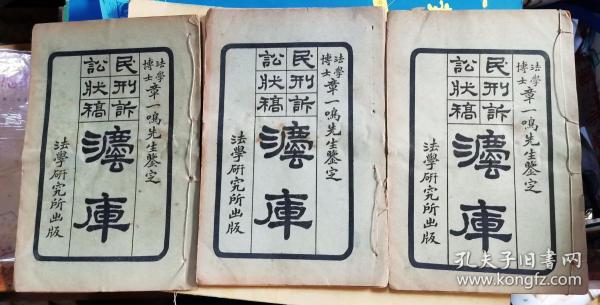 法學博士章一鳴先生鑒定
民刑訴
訟狀稿
灋庫
法學研究所出版
法學博士章一鳴先生鑒定
民刑訴
訟狀稿
灋庫
法學研究所出版
法學博士章一鳴先生鑒定
民刑訴
訟狀稿
灋庫
法學研究所出版
孔夫子旧书网
www.kongfz.com